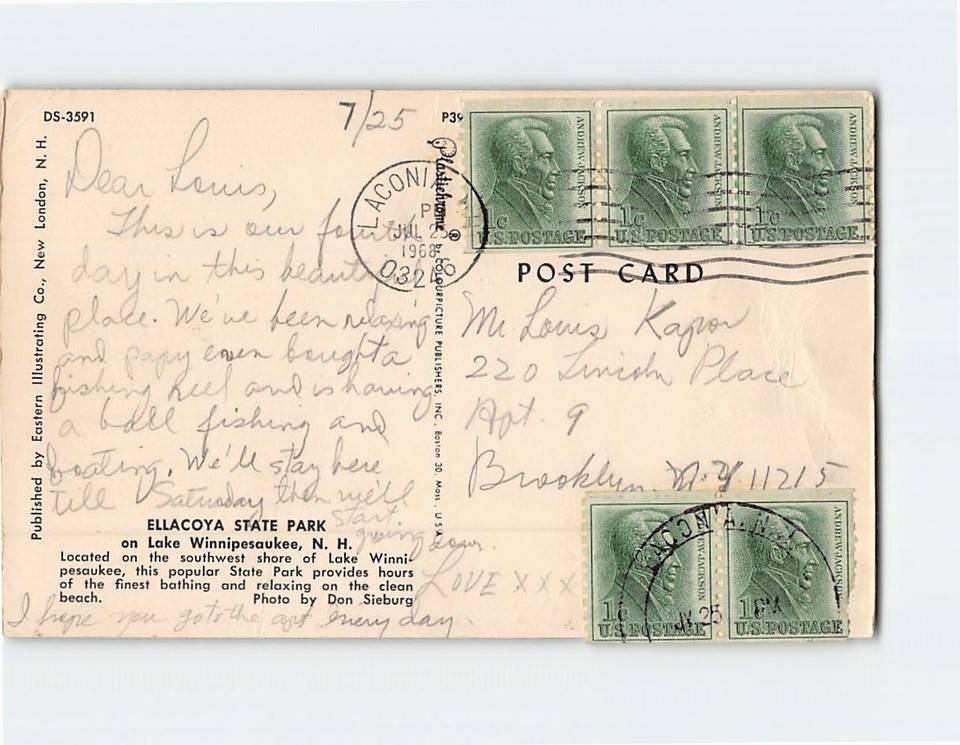 DS-3591
7/25
P39
Dear Louis,
This is our fourth
day in this beautiful
place. We've been relaxing
and papy even bought a
fishing reel and is having
a ball fishing and
boating. We'll stay here
till Saturday then we'll
start
going down.
LOVE XXX
I hope you go to the apt every day.
ELLACOYA STATE PARK
on Lake Winnipesaukee, N. H.
Located on the southwest shore of Lake Winni-
pesaukee, this popular State Park provides hours
of the finest bathing and relaxing on the clean
beach. Photo by Don Sieburg
Published by Eastern Illustrating Co., New London, N. H.
Plastichrome ® by COLOURPICTURE PUBLISHERS, INC., Boston 30, Mass., U.S.A.
LACONIA
PM
JUL 25
1968
03246
ANDREW JACKSON
1c
U.S. POSTAGE
ANDREW JACKSON
1c
U.S. POSTAGE
ANDREW JACKSON
1c
U.S. POSTAGE
POST CARD
Mr Louis Kapon
220 Lincoln Place
Apt. 9
Brooklyn, N.Y 11215
LACONIA, N.H.
JUL 25 PM
ANDREW JACKSON
1c
U.S. POSTAGE
ANDREW JACKSON
1c
U.S. POSTAGE